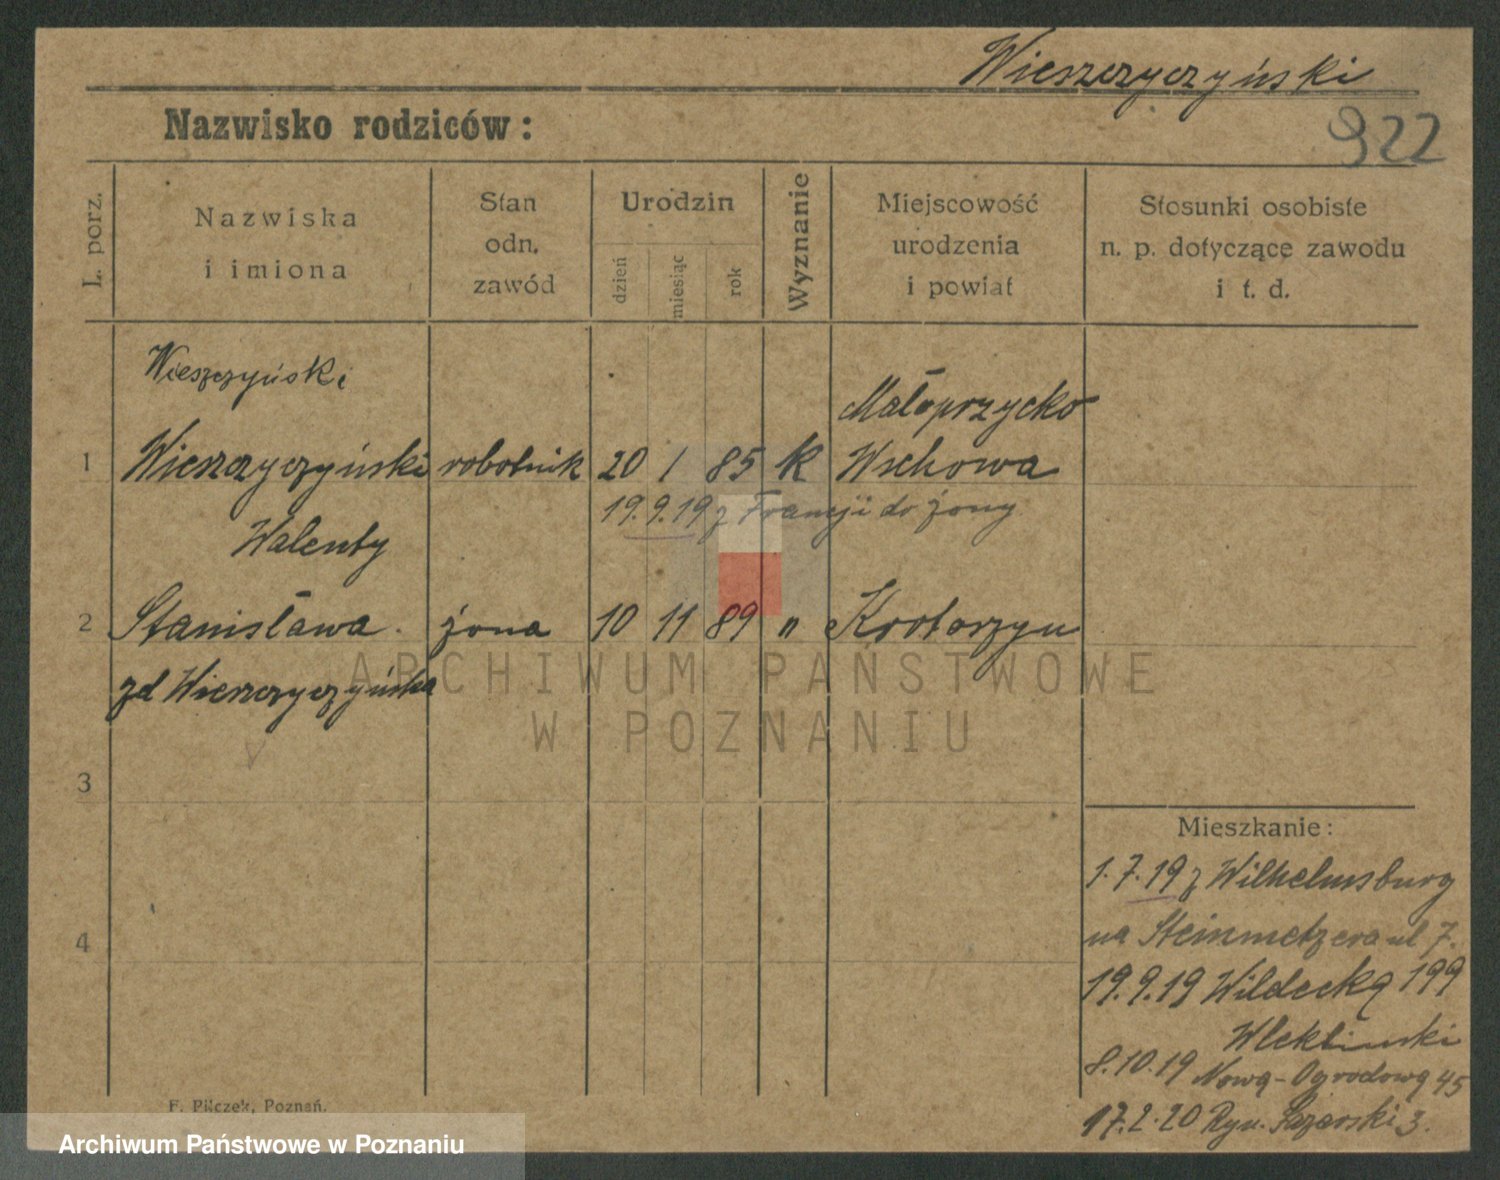 Wieszczyczyński
922
Nazwisko rodziców:
L. porz.
Nazwiska
i imiona
Stan
odn.
zawód
Urodzin
dzień
miesiąc
rok
Wyznanie
Miejscowość
urodzenia
i powiat
Stosunki osobiste
n. p. dotyczące zawodu
i t. d.
Wieszczyński
Małoprzycko
1 Wieszczyczyński robotnik 20 1 85 k Wschowa
19.9.19 z Francji do żony
Walenty
2 Stanisława żona 10 11 89 " Krotoszyn
zd Wieszczyczyńska
ARCHIWUM PAŃSTWOWE
W POZNANIU
3
4
Mieszkanie:
1.7.19 z Wilhelmsburg
na Steinmetzera ul 7.
19.9.19 Wildecką 199
8.10.19 Nową-Ogrodową 45
17.2.20 Ryn. Łazarski 3.
F. Pilczek, Poznań.
Archiwum Państwowe w Poznaniu